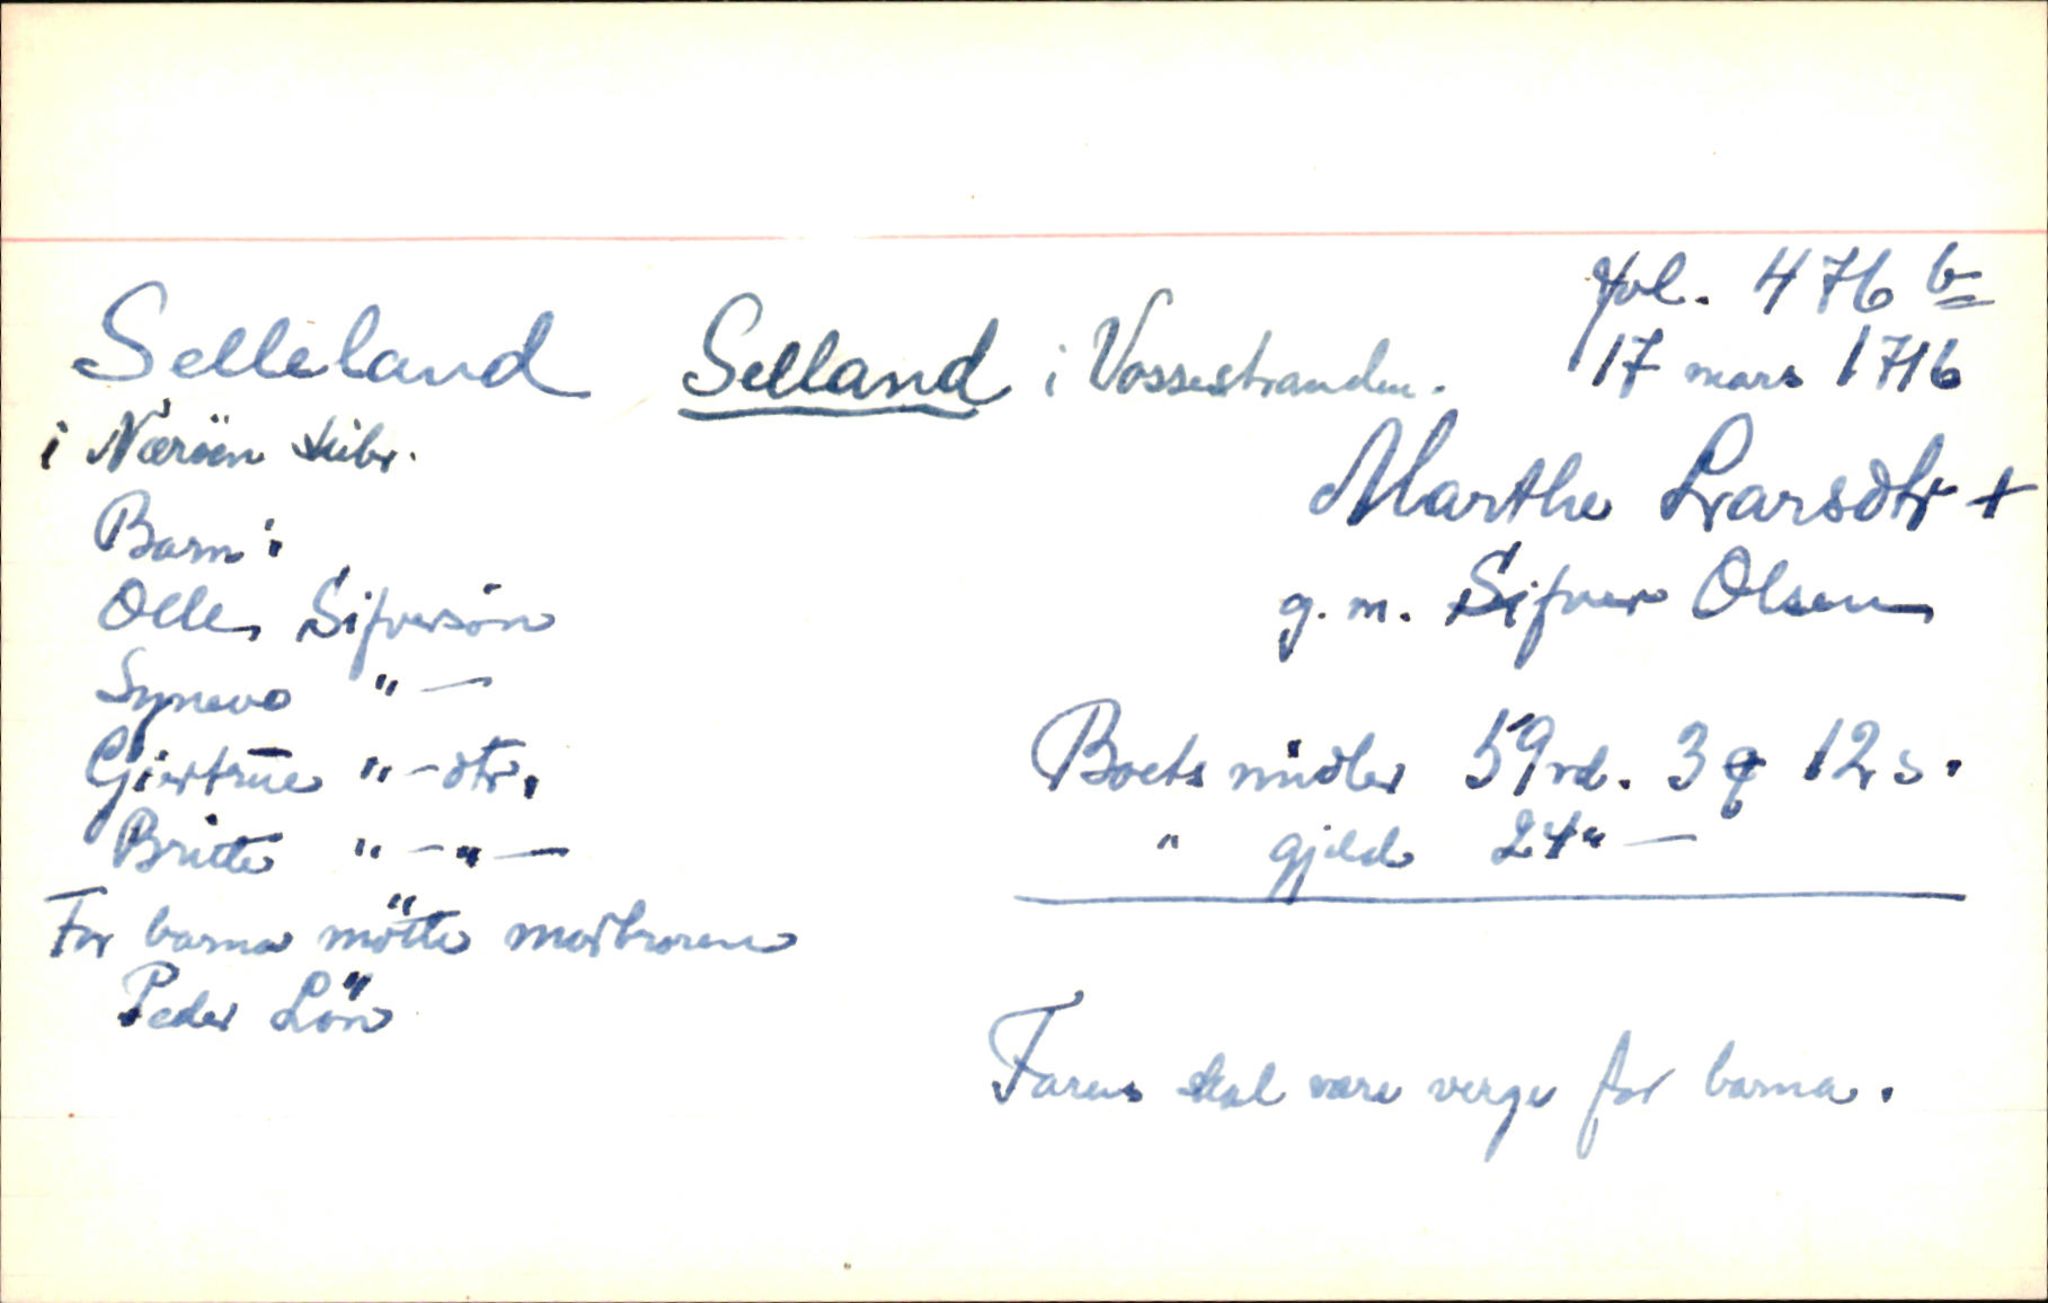 fol. 476 b
Selleland Selland i Vossestranden. 17 mars 1716
i Nærøen skibr.
Marthe Ivarsdtr +
Barn:
g. m. Sifver Olsen
Olle Sifversön
Synevo " —
Boets midler 59 rd. 3 ꝗ 12 s.
Giertrue " - dtr.
" gjeld 24 " —
Britte " — " —
For barna mötte morbroren
Peder Lön
Faren skal være verge for barna.